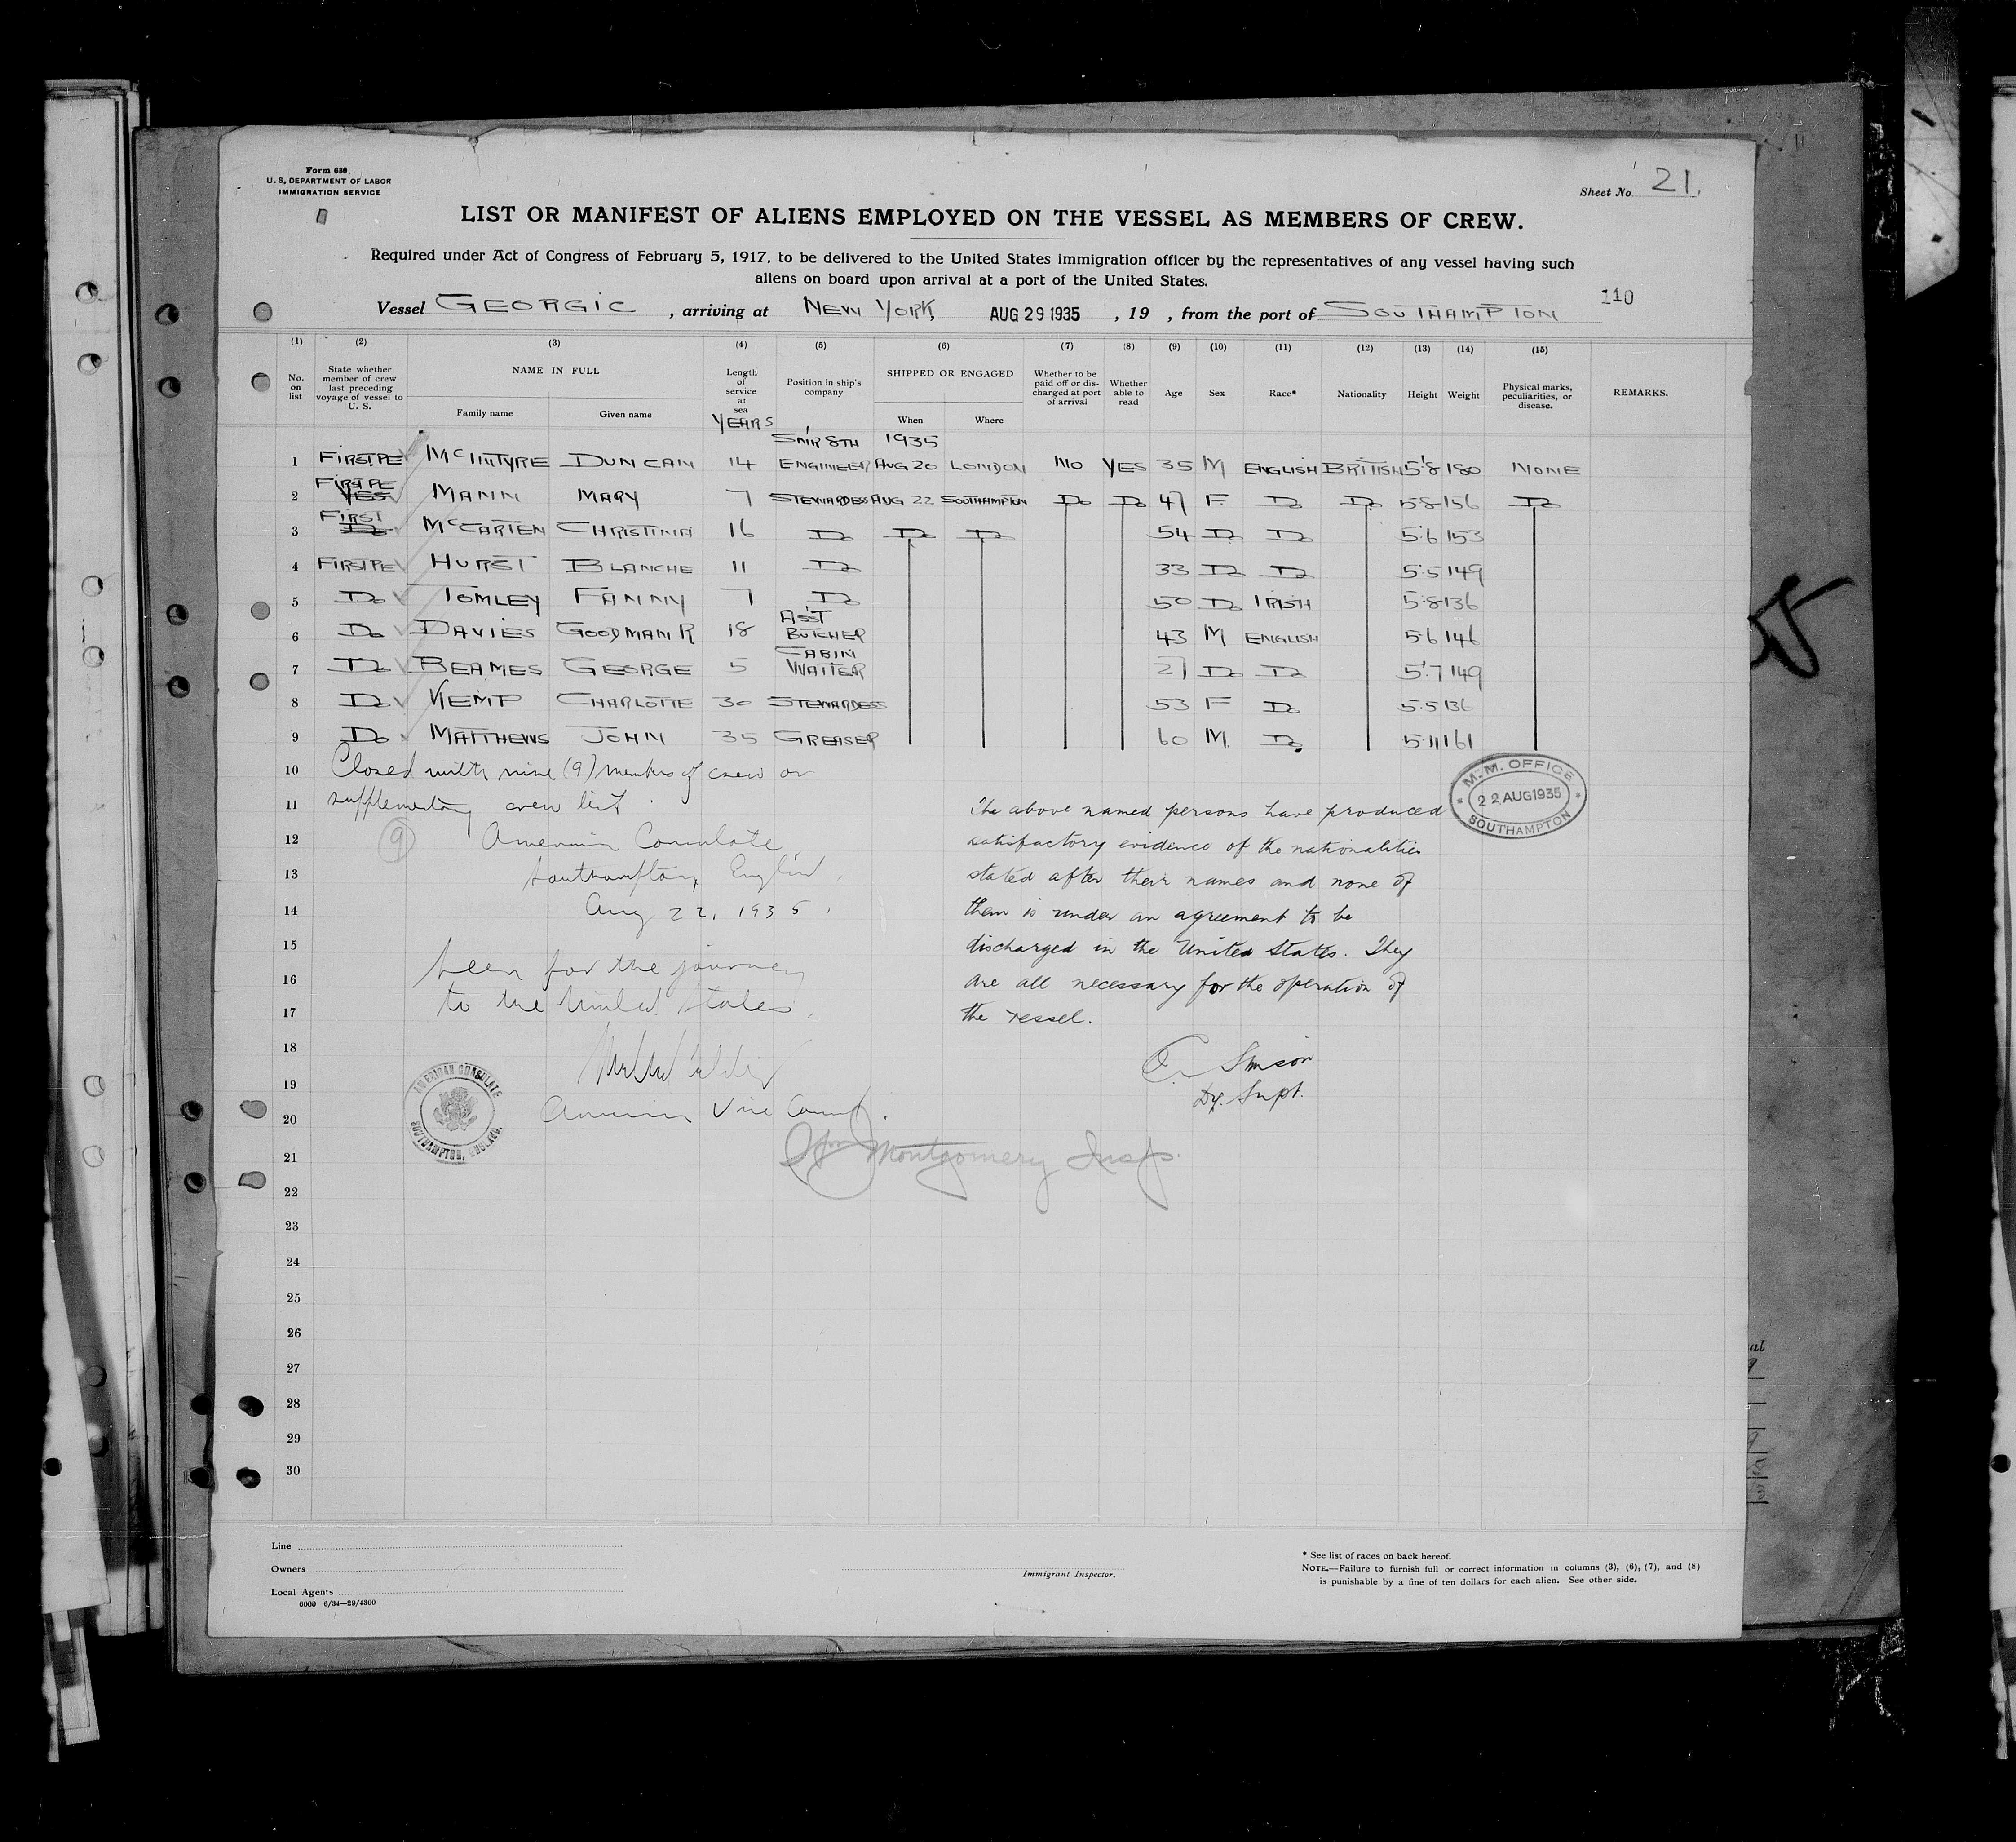 Form 680.
U. S. DEPARTMENT OF LABOR
IMMIGRATION SERVICE
Sheet No. 21.
LIST OR MANIFEST OF ALIENS EMPLOYED ON THE VESSEL AS MEMBERS OF CREW.
Required under Act of Congress of February 5, 1917, to be delivered to the United States immigration officer by the representatives of any vessel having such
aliens on board upon arrival at a port of the United States.
110
Vessel GEORGIC , arriving at NEW YORK, AUG 29 1935 , 19 , from the port of SOUTHAMPTON
(1) (2) (3) (4) (5) (6) (7) (8) (9) (10) (11) (12) (13) (14) (15)
No. on list State whether member of crew last preceding voyage of vessel to U. S. NAME IN FULL Family name Given name Length of service at sea YEARS Position in ship's company SHIPPED OR ENGAGED When Where Whether to be paid off or discharged at port of arrival Whether able to read Age Sex Race* Nationality Height Weight Physical marks, peculiarities, or disease. REMARKS.
SNR 8TH 1935
1 McINTYRE DUNCAN 14 ENGINEER AUG 20 LONDON NO YES 35 M ENGLISH BRITISH 5'8 180 NONE
2 YES MANN MARY 7 STEWARDESS AUG 22 SOUTHAMPTON Do Do 47 F Do Do 5.8 156 Do
FIRST
3 Do McCARTEN CHRISTINA 16 Do Do Do 54 Do Do 5.6 153
4 HURST BLANCHE 11 Do 33 Do Do 5.5 149
5 Do TOMLEY FANNY 7 Do 50 Do IRISH 5.8 136
ASST
6 Do DAVIES GOODMAN R 18 BUTCHER 43 M ENGLISH 5.6 146
CABIN
7 Do BEAMES GEORGE 5 WAITER 27 Do Do 5'.7 149
8 Do KEMP CHARLOTTE 30 STEWARDESS 53 F Do 5.5 136
9 Do MATTHEWS JOHN 35 GREASER 60 M. Do 5.11 161
10 Closed with nine (9) members of crew on
11 supplementary crew list.
M.M. OFFICE
22 AUG 1935
SOUTHAMPTON
The above named persons have produced
12 9 American Consulate,
satisfactory evidence of the nationalities
13 Southampton, England.
stated after their names and none of
14 Aug 22, 1935.
them is under an agreement to be
15
discharged in the United States. They
16 Seen for the journey
are all necessary for the operation of
17 to the United States.
the vessel.
18
Simson
Dy. Supt.
19
AMERICAN CONSULATE
SOUTHAMPTON, ENGLAND.
20 American Vice Consul.
21 Montgomery Insp.
22
23
24
25
26
27
28
29
30
Line
Owners
Local Agents
6000 6/34—29/4300
Immigrant Inspector.
* See list of races on back hereof.
NOTE.—Failure to furnish full or correct information in columns (3), (6), (7), and (8)
is punishable by a fine of ten dollars for each alien. See other side.